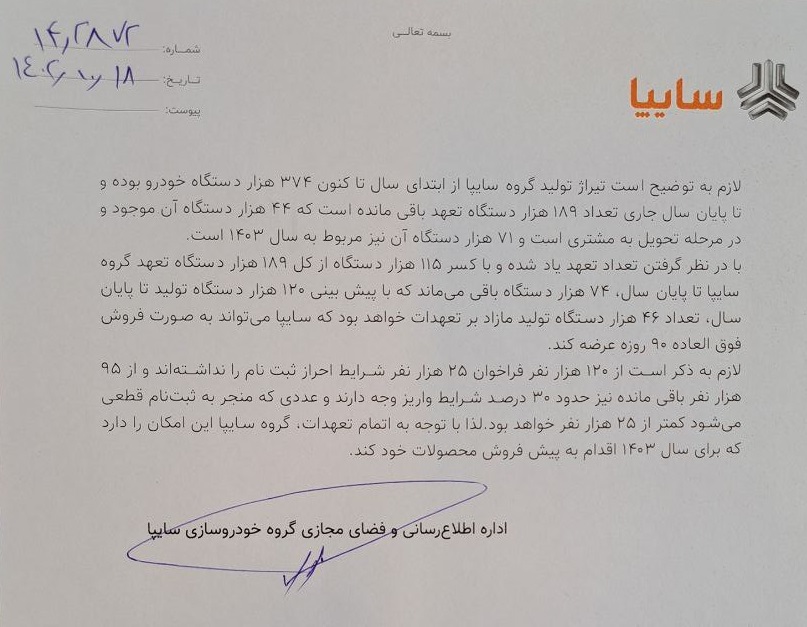 بسمه تعالی
شماره: ۱۴۰۲۸۷۲
تاریخ: ۱۴۰۲٫۱۰٫۱۸
پیوست:
سایپا
لازم به توضیح است تیراژ تولید گروه سایپا از ابتدای سال تا کنون ۳۷۴ هزار دستگاه خودرو بوده و
تا پایان سال جاری تعداد ۱۸۹ هزار دستگاه تعهد باقی مانده است که ۴۴ هزار دستگاه آن موجود و
در مرحله تحویل به مشتری است و ۷۱ هزار دستگاه آن نیز مربوط به سال ۱۴۰۳ است.
با در نظر گرفتن تعداد تعهد یاد شده و با کسر ۱۱۵ هزار دستگاه از کل ۱۸۹ هزار دستگاه تعهد گروه
سایپا تا پایان سال، ۷۴ هزار دستگاه باقی می‌ماند که با پیش بینی ۱۲۰ هزار دستگاه تولید تا پایان
سال، تعداد ۴۶ هزار دستگاه تولید مازاد بر تعهدات خواهد بود که سایپا می‌تواند به صورت فروش
فوق العاده ۹۰ روزه عرضه کند.
لازم به ذکر است از ۱۲۰ هزار نفر فراخوان ۲۵ هزار نفر شرایط احراز ثبت نام را نداشته‌اند و از ۹۵
هزار نفر باقی مانده نیز حدود ۳۰ درصد شرایط واریز وجه دارند و عددی که منجر به ثبت‌نام قطعی
می‌شود کمتر از ۲۵ هزار نفر خواهد بود.لذا با توجه به اتمام تعهدات، گروه سایپا این امکان را دارد
که برای سال ۱۴۰۳ اقدام به پیش فروش محصولات خود کند.
اداره اطلاع‌رسانی و فضای مجازی گروه خودروسازی سایپا